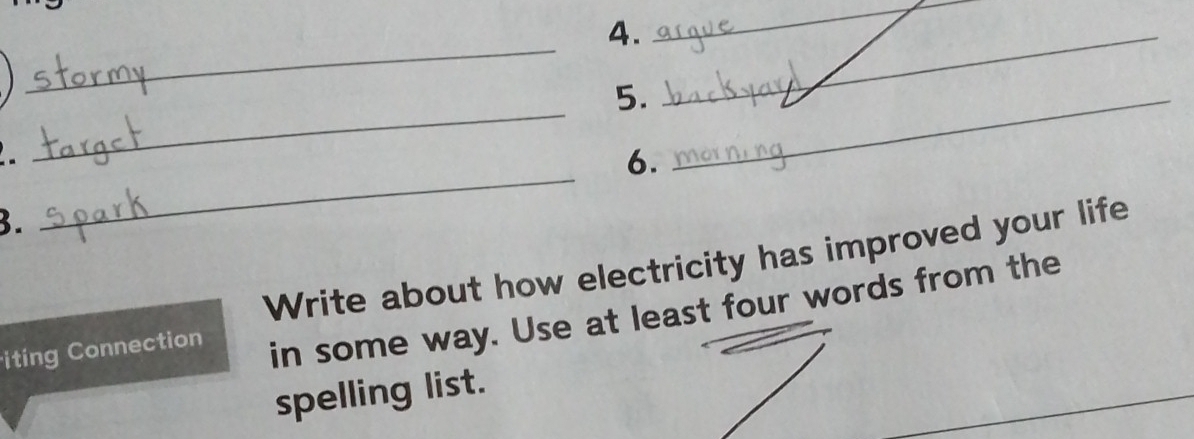 stormy
target
3. spark
4. argue
5. backyard
6. morning
iting Connection
Write about how electricity has improved your life
in some way. Use at least four words from the
spelling list.